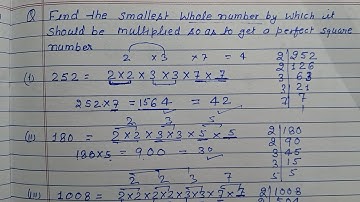 Q Find the smallest whole number by which it
should be multiplied so as to get a perfect square
number
2 × 3 × 7 = 4
(i) 252 = 2×2×3×3×7×7
252×7 = 1564 = 42
2 | 252
2 | 126
3 | 63
3 | 21
7 | 7
1
2 3 5
(ii) 180 = 2×2×3×3×5×5
180×5 = 900 = 30
2 | 180
2 | 90
3 | 45
3 | 15
5 | 5
2 2 3 7
(iii) 1008 = 2×2×2×2×3×3×7×7
2 | 1008
2 | 504